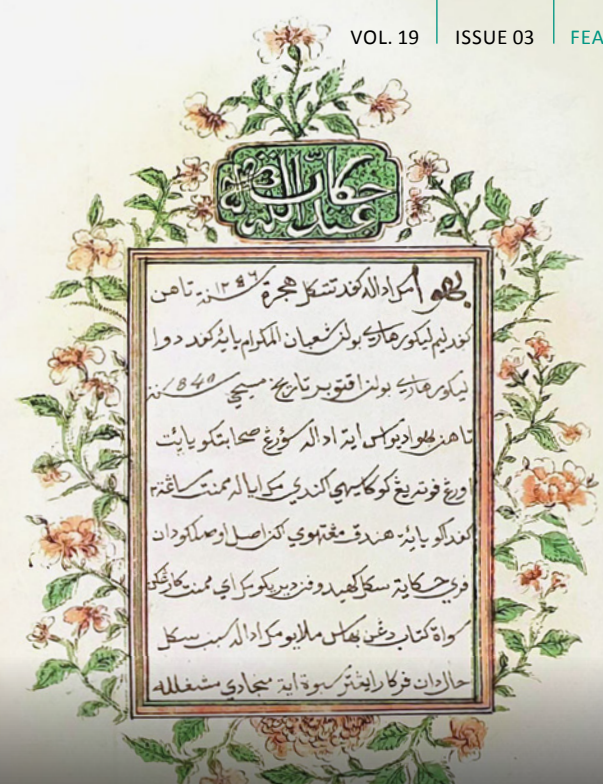 VOL. 19 ISSUE 03 FEA
حكاية عبد الله
بهوا مک اداله کفد تتکل هجرة سنة ١٢٥٦ تاهن
کفد ليم ليکور هاري بولن شعبان المکرام يائة کفد دوا
ليکور هاري بولن اقتوبر تاريخ مسيحي سنة 1840
تاهن بهوا ديواس اية اداله سؤرڠ صحابتکو يائيت
اورڠ فوته يڠ کوکاسيهي اکندي مک اياله ممنت ساڠة٢
کفداکو يائة هندق مڠتهوي اکن اصل اوصلکو دان
فري حکاية سکل کهيدوفن ديريکو مک اي ممنت کارڠکن
سواة کتاب دڠن بهاس ملايو مک اداله سبب سکل
حال دان فرکارا يڠتر سبوة اية منجادي مشغلله